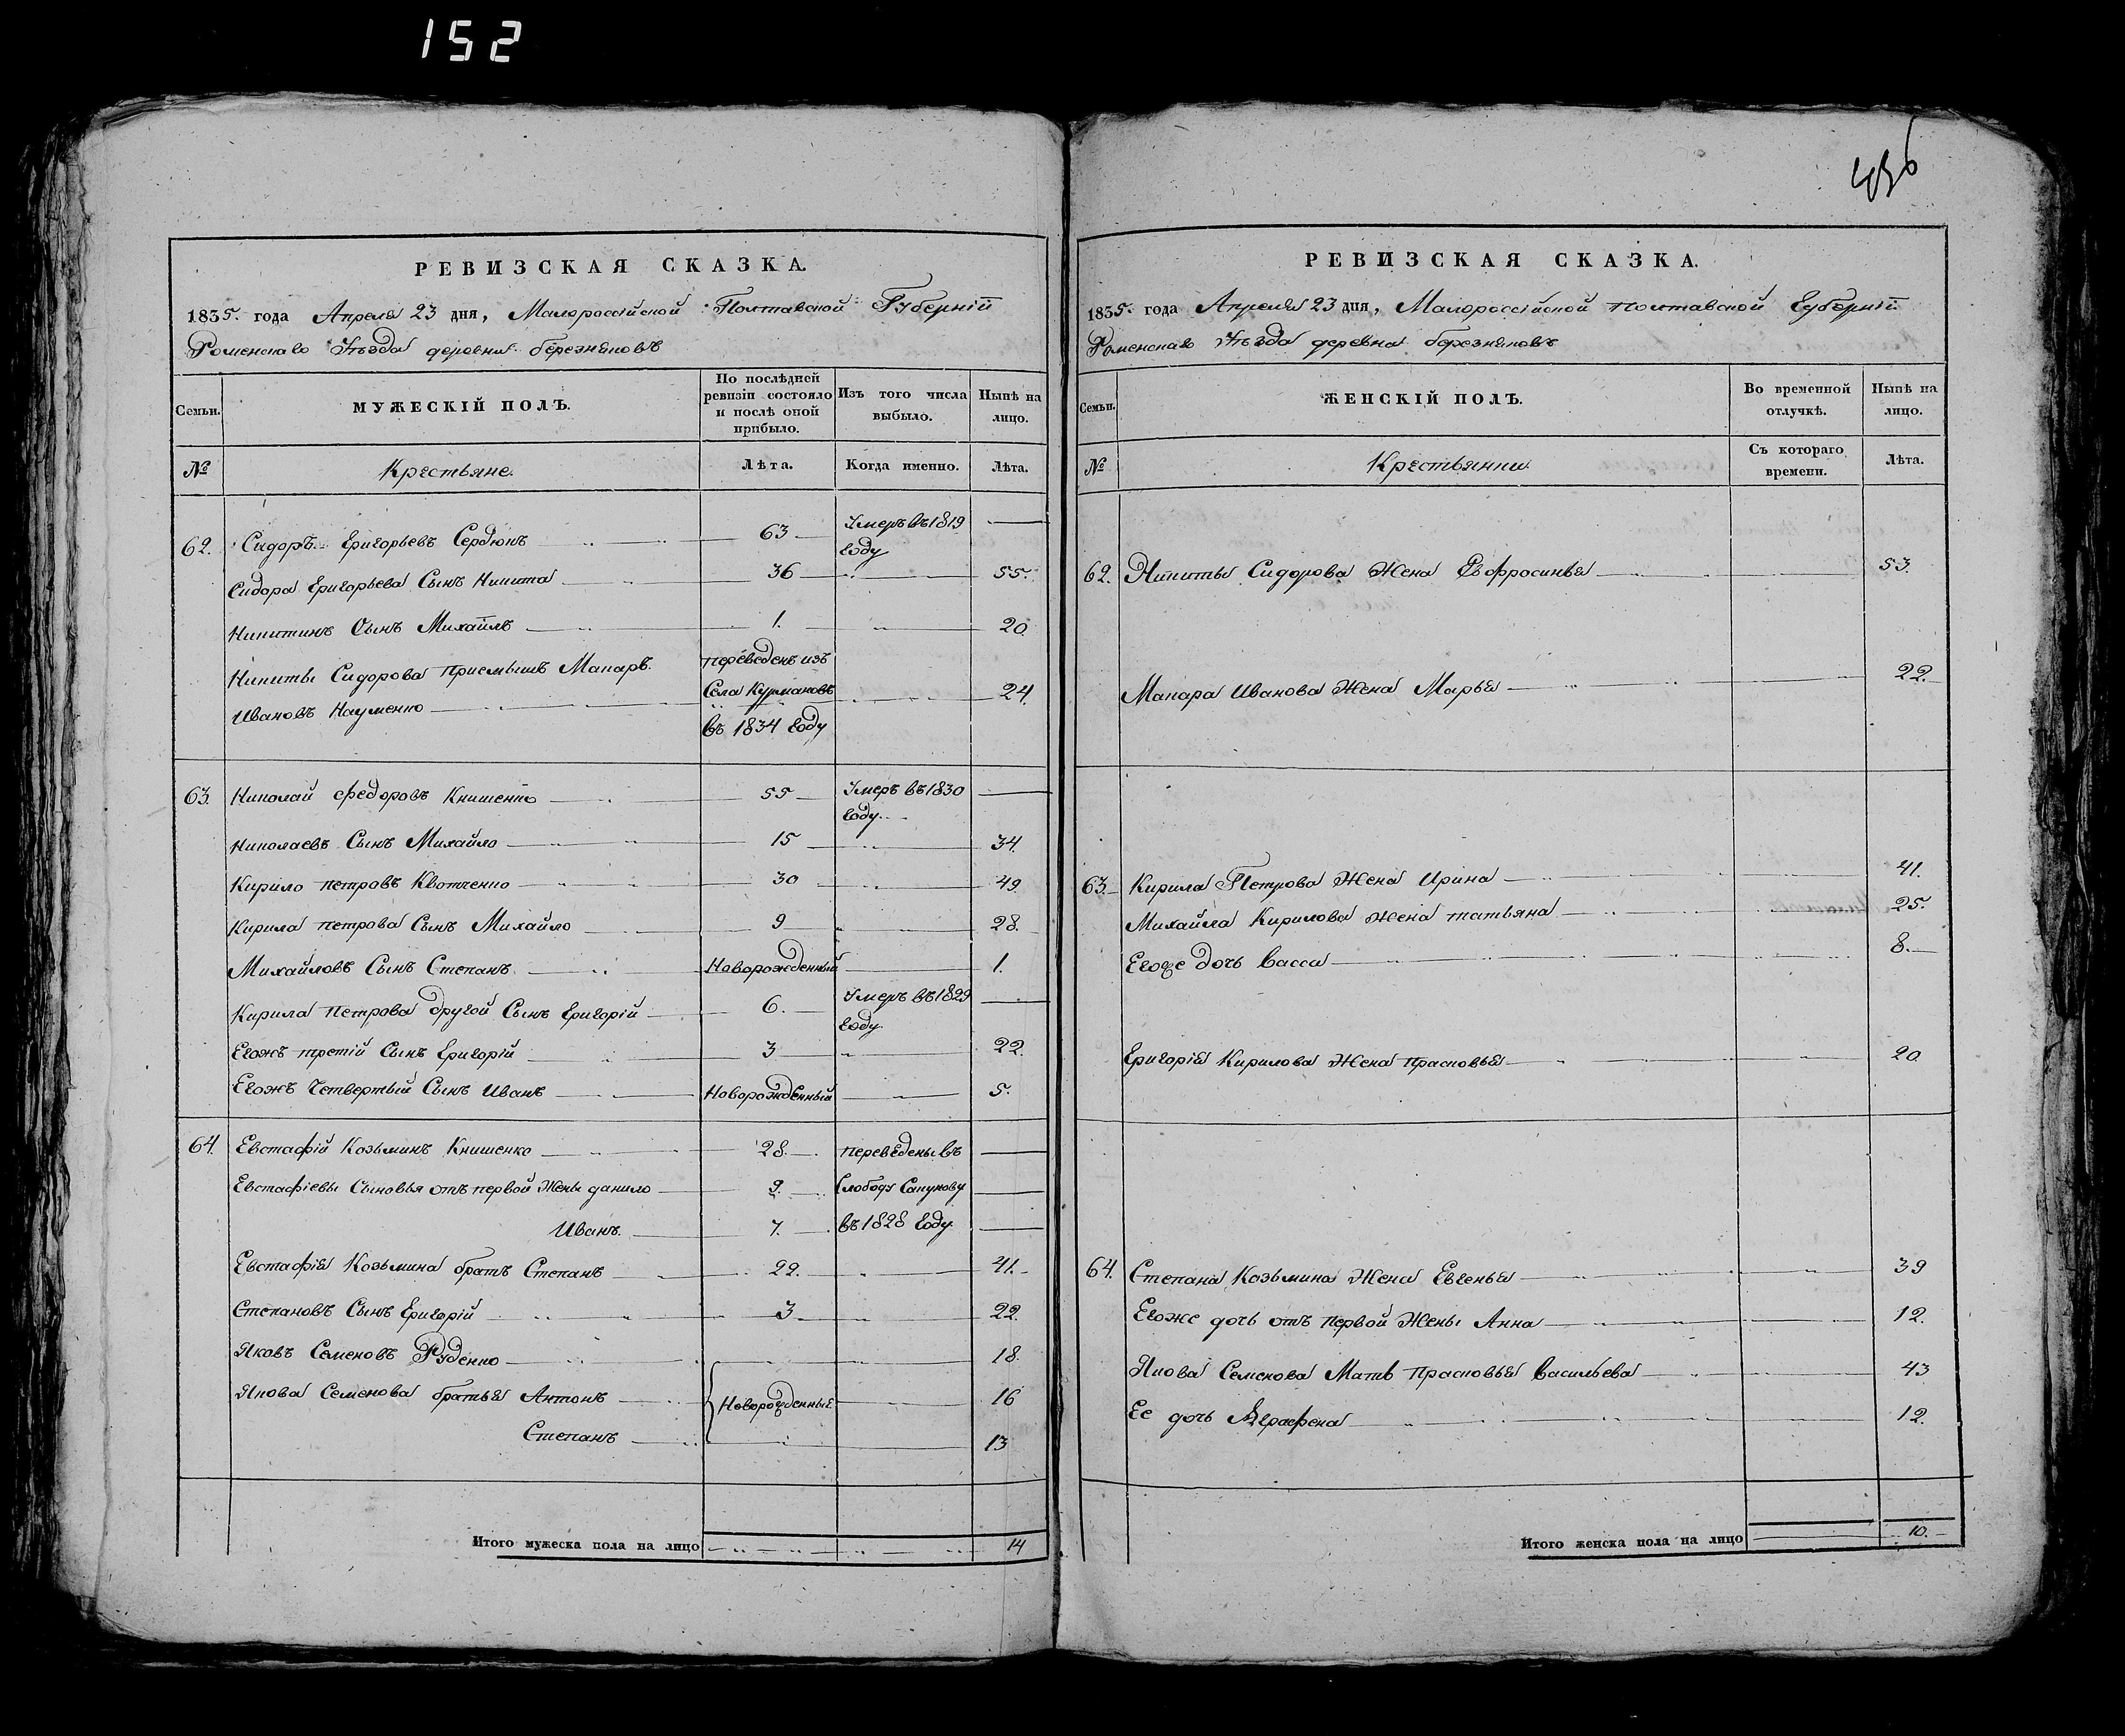 152
436
РЕВИЗСКАЯ СКАЗКА.
1835. года Апреля 23 дня, Малороссійской Полтавской Губерніи
Роменскаго Уѣзда деревни березняковъ
Семьи.
МУЖЕСКІЙ ПОЛЪ.
По послѣдней ревизіи состояло и послѣ оной прибыло.
Изъ того числа выбыло.
Нынѣ на лицо.
№ Крестьяне. Лѣта. Когда именно. Лѣта.
62. Сидоръ Григорьевъ Сердюкъ 63 Умеръ въ 1819 году
Сидора Григорьева Сынъ Никита 36 55.
Никитинъ Сынъ Михайлъ 1. 20.
Никиты Сидорова приемышъ Макаръ
Ивановъ Науменко переведенъ изъ Села Курмановъ въ 1834 году 24.
63. Николай федоровъ Книшенко 55 Умеръ въ 1830 году
Николаевъ Сынъ Михайло 15 34.
Кирило петровъ Квотченко 30 49.
Кирила петрова Сынъ Михайло 9 28.
Михайловъ Сынъ Степанъ Новорожденный 1.
Кирила петрова другой Сынъ Григорій 6. Умеръ въ 1829 году
Егожъ третій Сынъ Григорій 3 22.
Егожъ Четвертый Сынъ Иванъ Новорожденный 5.
64. Евстафій Козьминъ Книшенко 28. переведены въ
Евстафіевы Сыновья отъ первой Жены данило 9. Слободу Сапунову
Иванъ. 7. въ 1828 году
Евстафія Козьмина братъ Степанъ 22. 41.
Степановъ Сынъ Григорій 3 22.
Яковъ Семеновъ Руденко 18.
Якова Семенова братья Антонъ Новорожденные 16
Степанъ 13
Итого мужеска пола на лицо 14
РЕВИЗСКАЯ СКАЗКА.
1835. года Апреля 23 дня, Малороссійской полтавской Губерніи
Роменскаго Уѣзда деревни березняковъ
Семьи.
ЖЕНСКІЙ ПОЛЪ.
Во временной отлучкѣ.
Нынѣ на лицо.
№ Крестьянки Съ котораго времени. Лѣта.
62. Никиты Сидорова Жена Евфросинья 53.
Макара Иванова Жена Марья 22.
63. Кирила Петрова Жена Ирина 41.
Михайла Кирилова Жена татьяна 25.
Егоже дочь Васса 8.
Григорія Кирилова Жена прасковья 20
64. Степана Козьмина Жена Евгенья 39
Егоже дочь отъ первой Жены Анна 12.
Якова Семенова Мать прасковья Васильева 43
Ее дочь Аграфена 12.
Итого женска пола на лицо 10.